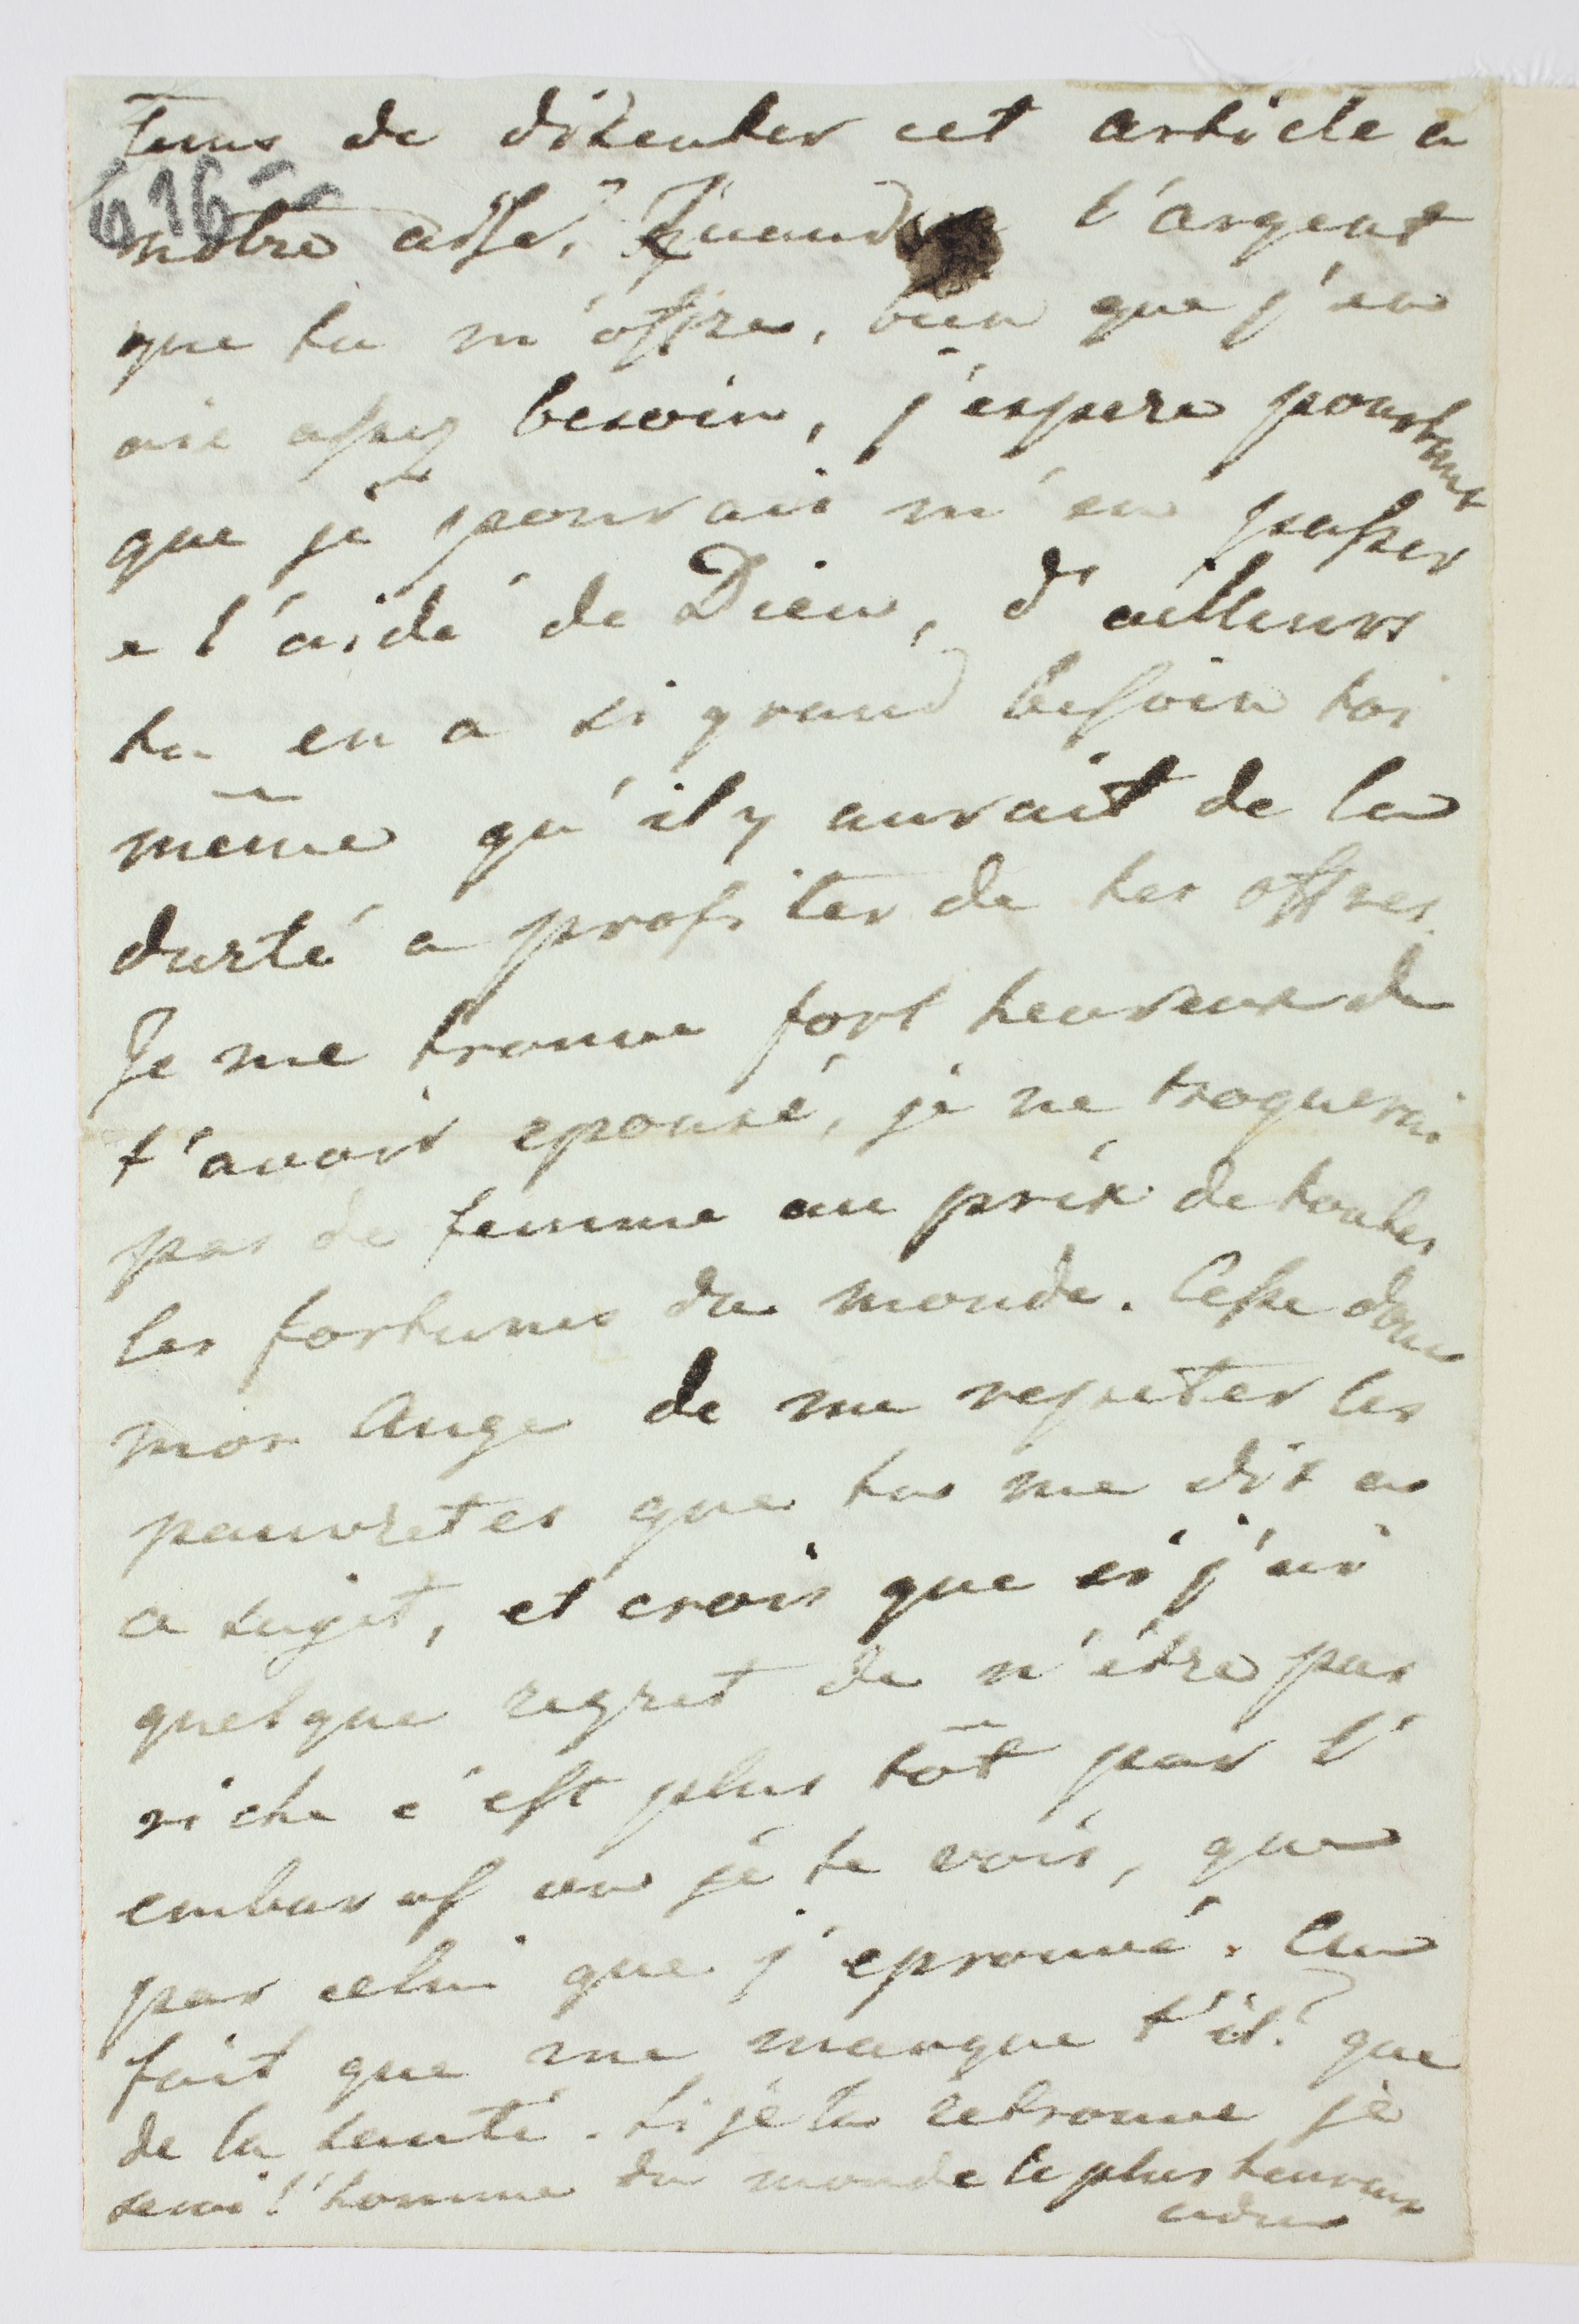 tems de discuter cet article a
616
notre aise. Quand a l'argent
que tu m'offre, bien que j'en
aie assez besoin, j'espere pourtant
que je pourrais m'en passer
a l'aide de Dieu, d'ailleurs
tu en a si grand besoin toi
même qu'il y aurait de la
durté a profiter de tes offres.
Je me trouve fort heureux de
t'avoir epousé, je ne troquerai
pas de femme au prix de toutes
les fortunes du monde. Cesse donc
mon Ange de me repeter les
pauvretes que tu me dis a
ce sujet, et crois que si j'ai
quelque regret de n'être pas
riche c'est plus tôt par l'
embaras ou je te vois, que
par celui que j'eprouve. Au
fait que me manque t'il? que
de la santé. Si je la retrouve je
serai l'homme du monde le plus heureux
adieu